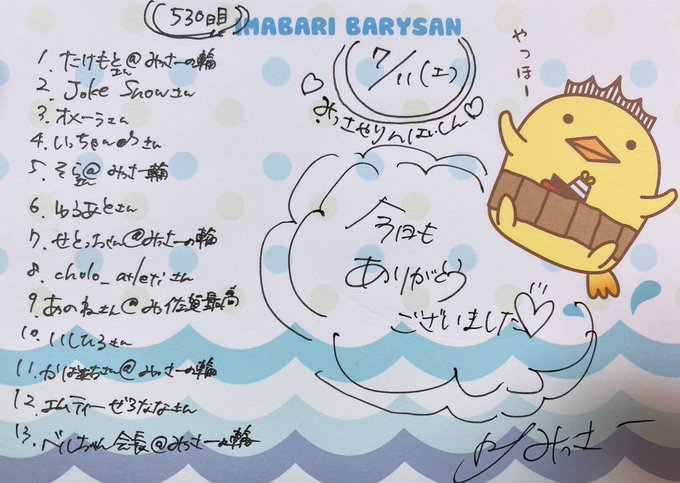 530日目
IMABARI BARYSAN
1. たけもと@みっさーの輪
さん
2. Joke Snowさん
3. オメーラさん
4. いっちゃんさん
5. そら@みっさー輪
さん
6. ゆるあとさん
7. せとっちゃん@みっさーの輪
8. cholo_atletiさん
9. あのねさん@みっ佐賀最高
10. いしひろさん
11. かばさん@みっさーの輪
12. エムティーぜろななさん
13. べいちゃん会長@みっさーの輪
7/11(土)
みっさやりんはいしん
今日も
ありがとう
ございました
みっさー
やっほー